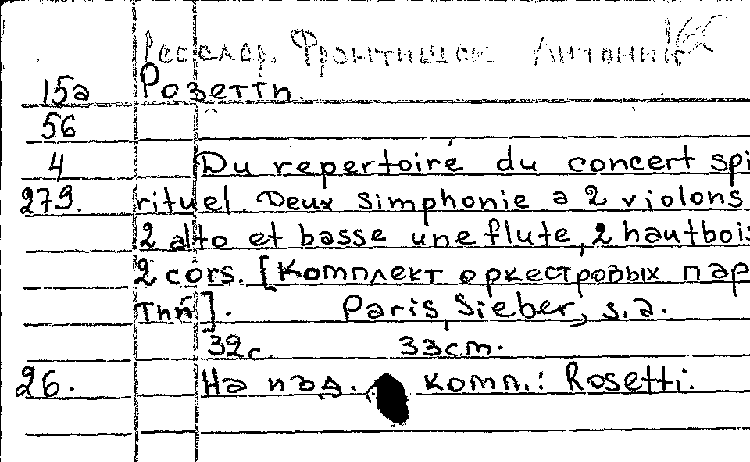 Ресслер, Франтишек Антонин
15а Розетти.
56
4 Du repertoire du concert spi
279. rituel Deux simphonie a 2 violons
2 alto et basse une flute, 2 hautbois
2 cors. [Комплект оркестровых пар
тий]. Paris, Sieber, s.a.
32с. 33cm.
26. На изд. комп.: Rosetti.